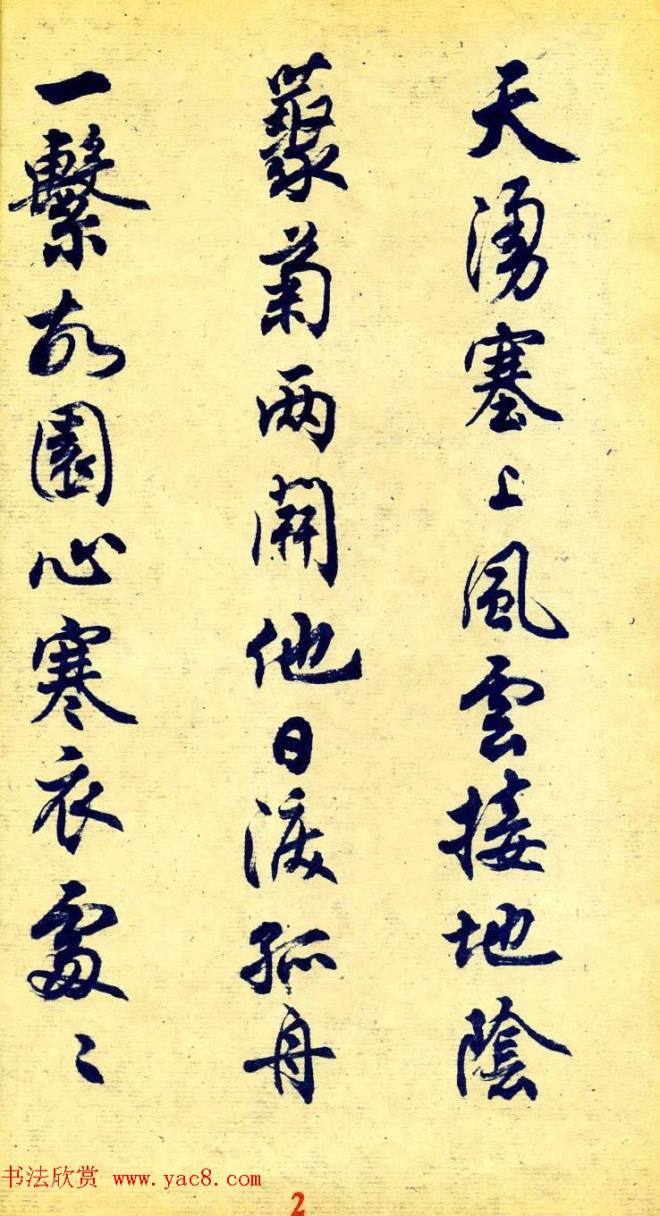 天湧塞上風雲接地陰
叢菊两開他日淚孤舟
一繫故園心寒衣處〻
书法欣赏 www.yac8.com
2